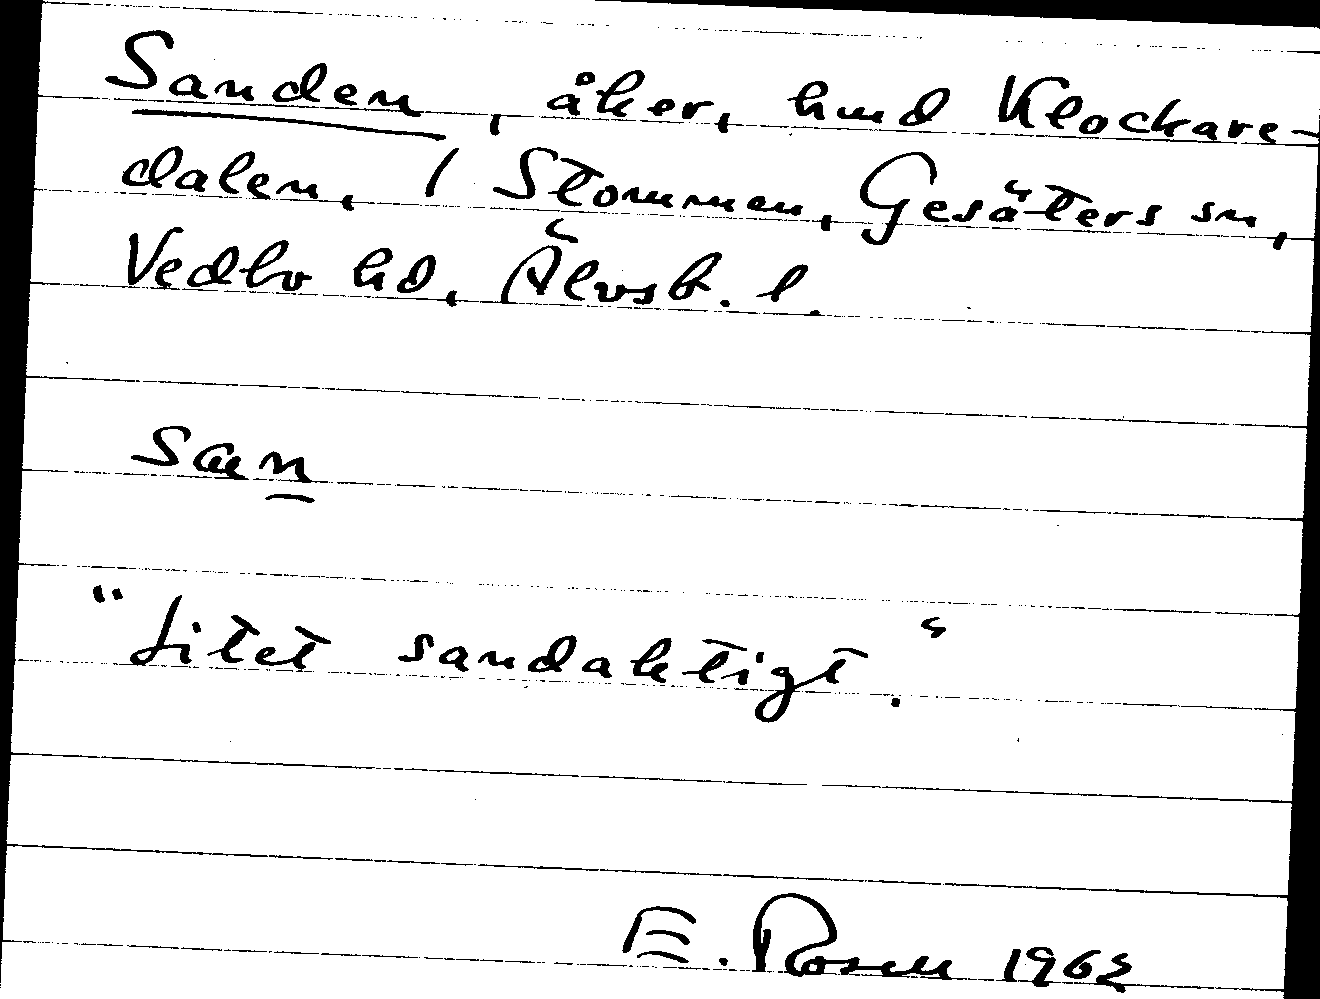 Sanden, åker, hmd Klockare-
dalen, 1 Stommen, Gesäters sn,
Vedbo hd, Älvsb. l.
San
"Litet sandaktigt."
E. Rosell 1962